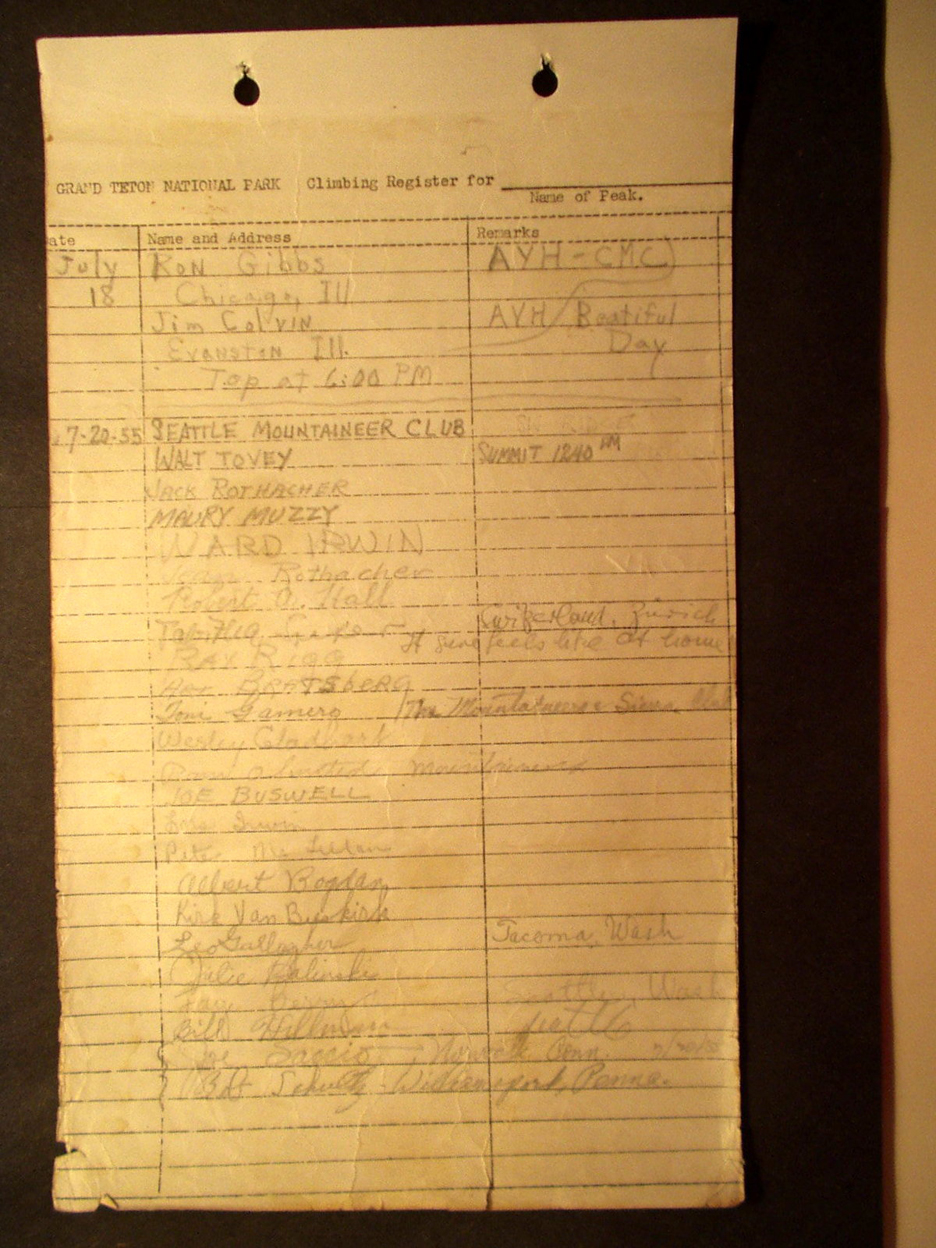 GRAND TETON NATIONAL PARK Climbing Register for
Name of Peak.
ate Name and Address Remarks
July Ron Gibbs AYH-CMC
18 Chicago, Ill
Jim Colvin AYH Beatiful
Evanston Ill. Day
Top at 6:00 PM
7-20-55 SEATTLE MOUNTAINEER CLUB
WALT TOVEY SUMMIT 1240 PM
JACK ROTHACHER
MAURY MUZZY
WARD IRWIN
Rothacher
Robert O. Hall
Zürich
It sure feels like at home
RAY RIGG
BRATSBERG
Toni The Mountaineers & Sierra Club
Wesley
Mountaineers
JOE BUSWELL
Lois Irwin
Pete
Albert Bogdan
Kirk Van Buskirk
Leo Gallagher Tacoma, Wash
Julie
Seattle, Wash
Bill Seattle
Joe Norwalk Conn.
Schultz - Williamsport, Penna.